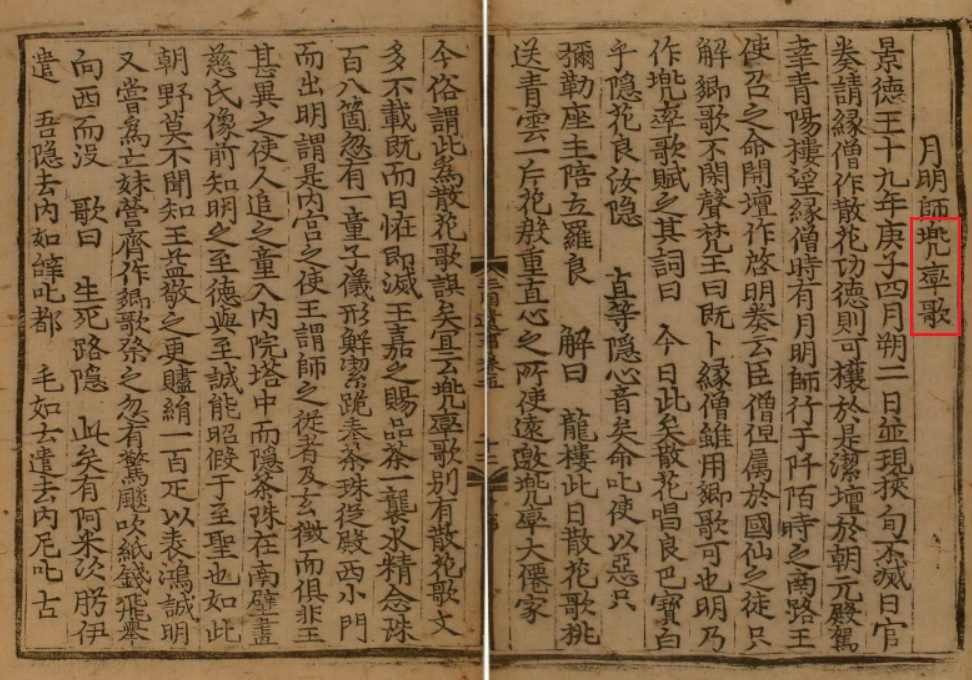 月明師兜率歌
景德王十九年庚子四月朔二日並現挾旬不滅日官
奏請緣僧作散花功德則可禳於是潔壇於朝元殿駕
幸青陽樓望緣僧時有月明師行于阡陌時之南路王
使召之命開壇作啓明奏云臣僧但屬於國仙之徒只
解鄕歌不閑聲梵王曰旣卜緣僧雖用鄕歌可也明乃
作兜率歌賦之其詞曰 今日此矣散花唱良巴寶白
乎隱花良汝隱 直等隱心音矣命叱使以惡只
彌勒座主陪立羅良 解曰 龍樓此日散花歌挑
送青雲一片花殷重直心之所使遠邀兜率大僊家
今俗謂此爲散花歌誤矣宜云兜率歌別有散花歌文
多不載旣而日怪即滅王嘉之賜品茶一襲水精念珠
百八箇忽有一童子儀形鮮潔跪奉茶珠從殿西小門
而出明謂是內宮之使王謂師之從者及玄徵而俱非王
甚異之使人追之童入內院塔中而隱茶珠在南壁畫
慈氏像前知明之至德與至誠能昭假于至聖也如此
朝野莫不聞知王益敬之更贐絹一百疋以表鴻誠明
又嘗爲亡妹營齋作鄕歌祭之忽有驚颷吹紙錢飛擧
向西而没 歌曰 生死路隱 此矣有阿米次肹伊
遣 吾隱去內如辝叱都 毛如去遣去內尼叱古
三國遺事 卷五